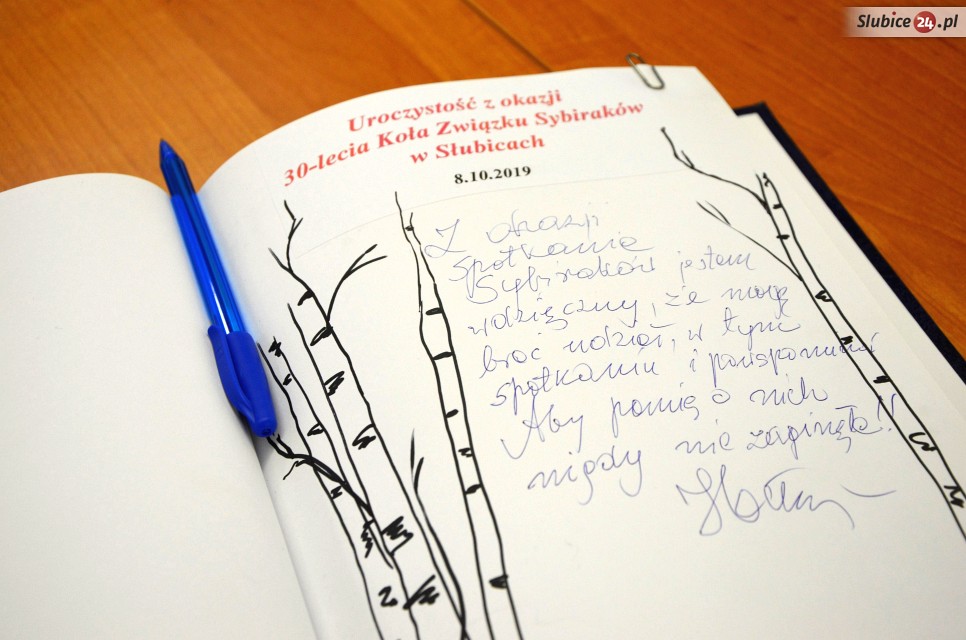 Slubice24.pl
Uroczystość z okazji
30-lecia Koła Związku Sybiraków
w Słubicach
8.10.2019
Z okazji
spotkania
Sybiraków jestem
wdzięczny, że mogę
brać udział, w tym
spotkaniu i powspominać
Aby pamię o nich
nigdy nie zaginęła!!